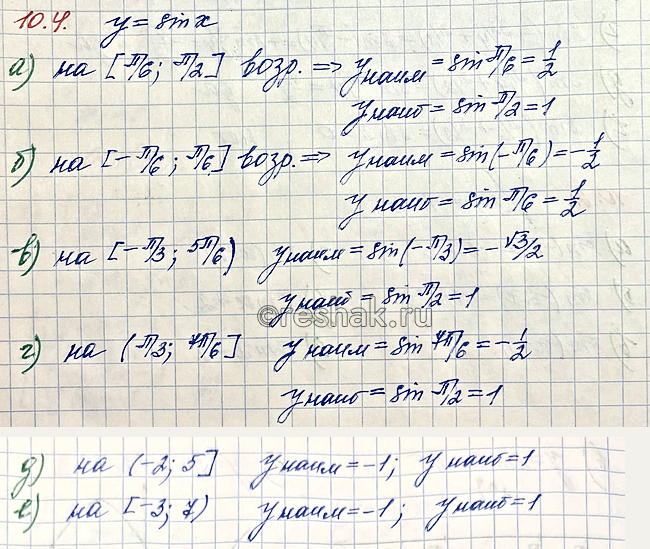 10.4. y = sin x
а) на [π/6; π/2] возр. ⇒ y наим = sin π/6 = 1/2
y наиб = sin π/2 = 1
б) на [-π/6; π/6] возр. ⇒ y наим = sin(-π/6) = -1/2
y наиб = sin π/6 = 1/2
в) на [-π/3; 5π/6) y наим = sin(-π/3) = -√3/2
y наиб = sin π/2 = 1
©reshak.ru
г) на (π/3; 7π/6] y наим = sin 7π/6 = -1/2
y наиб = sin π/2 = 1
д) на (-2; 5] y наим = -1; y наиб = 1
е) на [-3; 7) y наим = -1; y наиб = 1